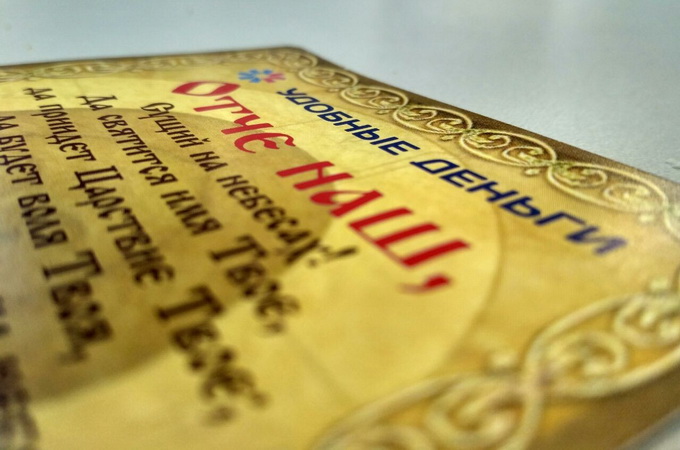 УДОБНЫЕ ДЕНЬГИ
Отче наш,
Сущий на небесах!
Да святится имя Твое,
Да придет Царствие Твое;
Да будет воля Твоя,